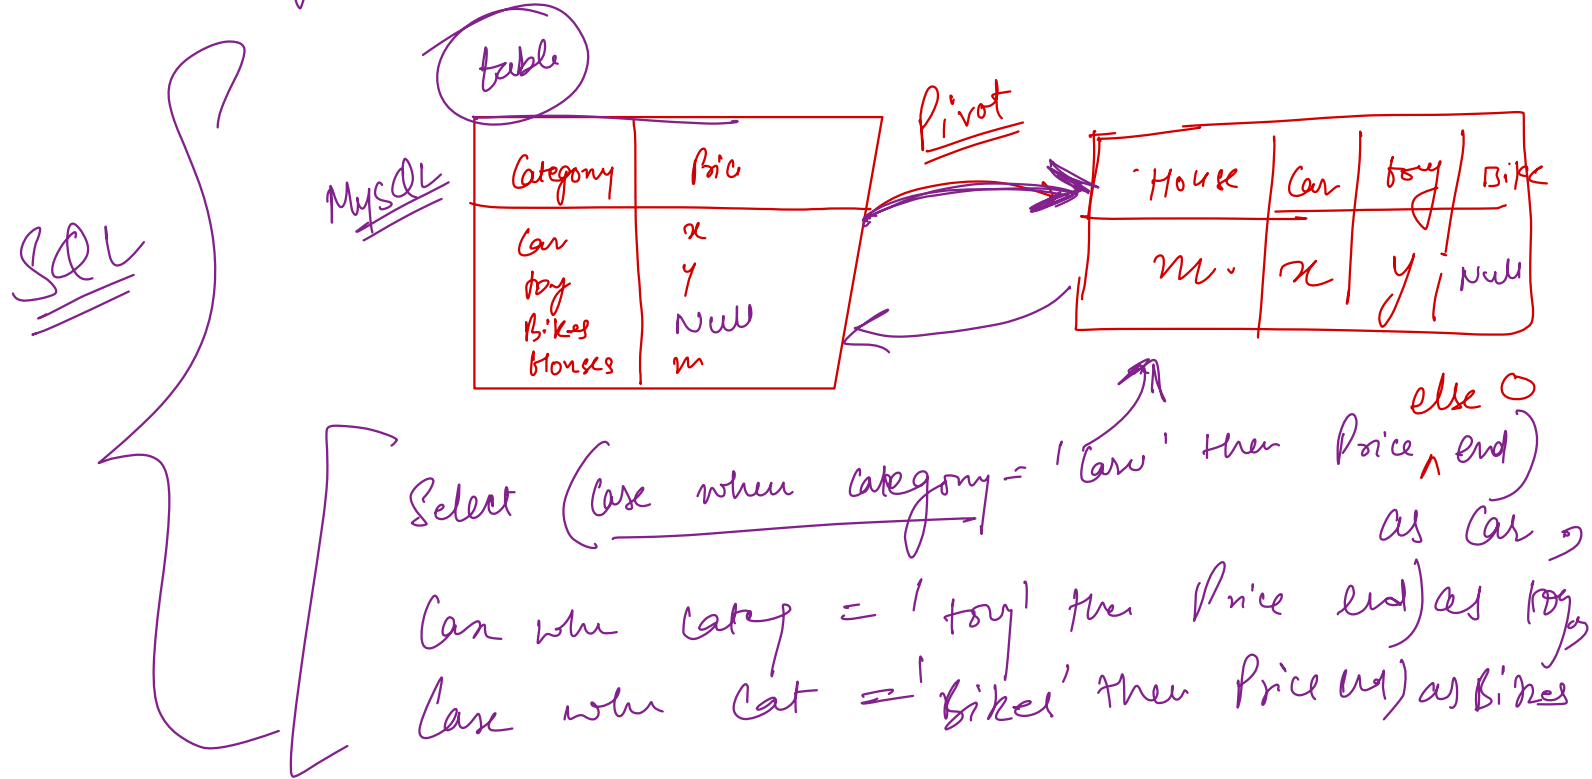 table
Pivot
MySQL
SQL
Category Pric
Car x
toy y
Bikes Null
Houses m
House Car toy Bike
m. x y Null
else 0
Select (Case when category = 'Car' then Price ^ end)
as Car,
Case whe categ = 'toy' then Price end) as toy,
Case whe Cat = 'Bikes' then Price end) as Bikes